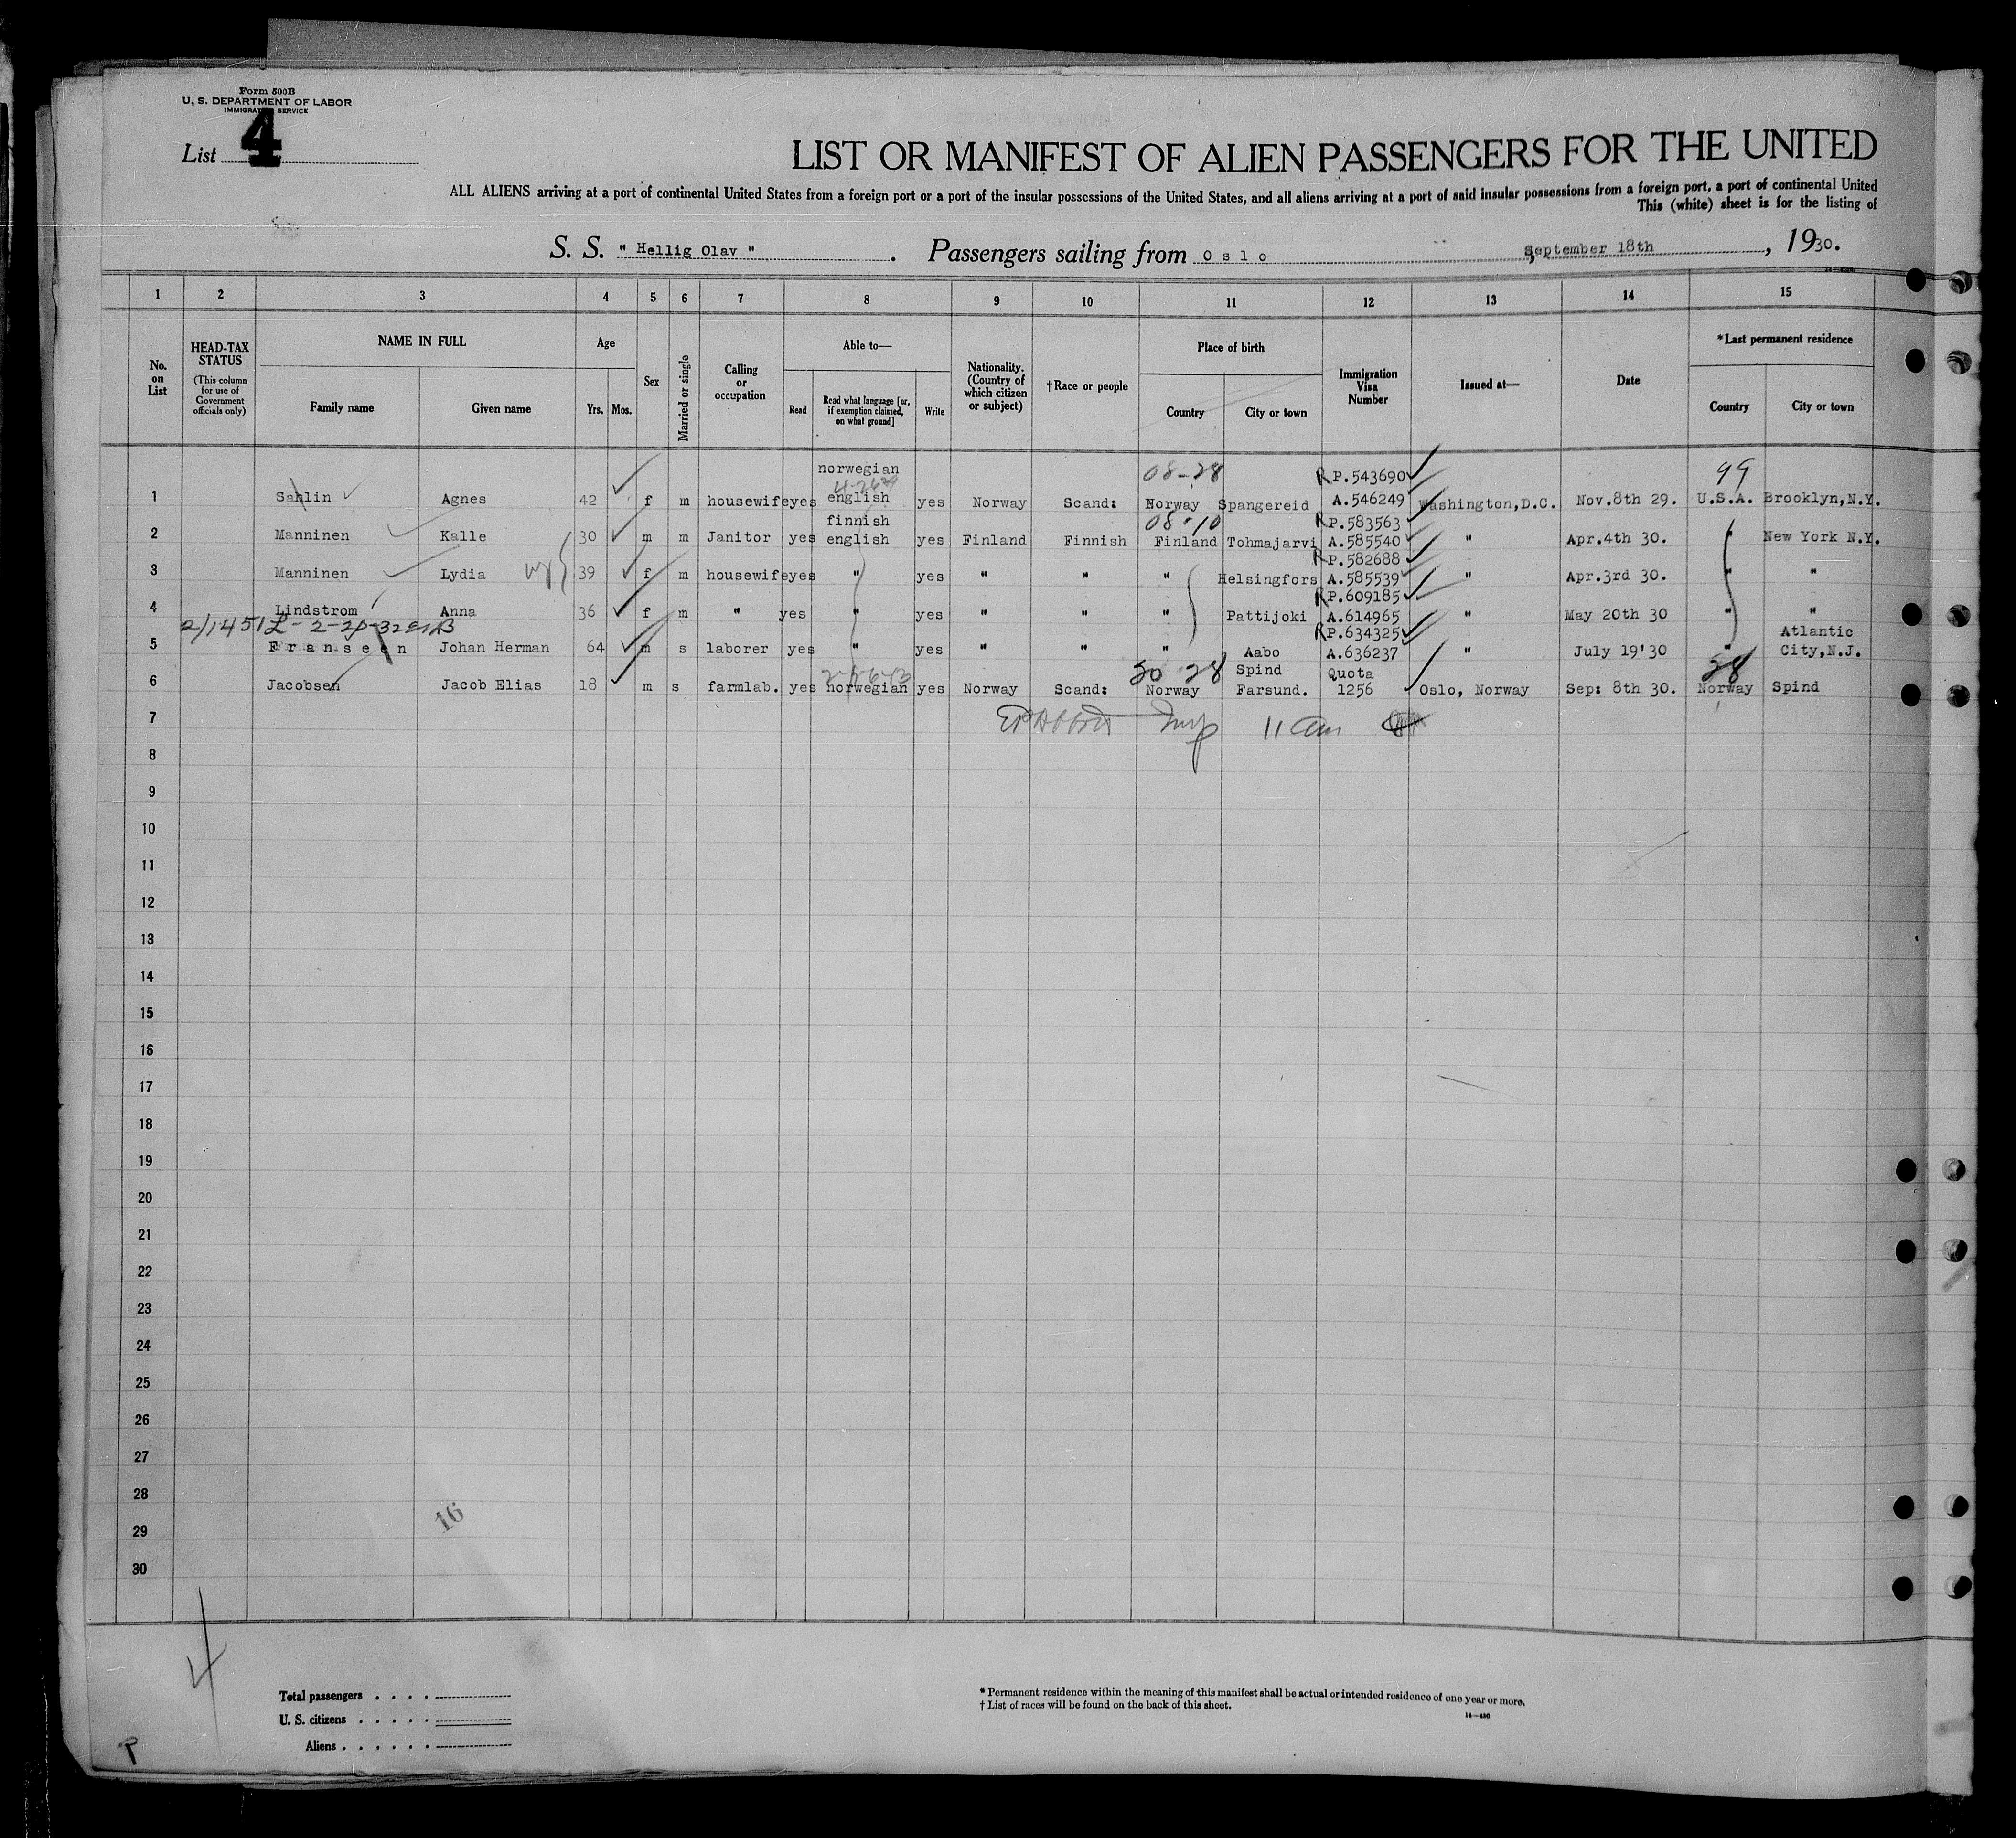 Form 500B
U. S. DEPARTMENT OF LABOR
IMMIGRATION SERVICE
List 4
LIST OR MANIFEST OF ALIEN PASSENGERS FOR THE UNITED
ALL ALIENS arriving at a port of continental United States from a foreign port or a port of the insular possessions of the United States, and all aliens arriving at a port of said insular possessions from a foreign port, a port of continental United
This (white) sheet is for the listing of
S. S. " Hellig Olav ". Passengers sailing from O s l o, September 18th, 1930.
1 2 3 4 5 6 7 8 9 10 11 12 13 14 15
No. on List
HEAD-TAX STATUS
(This column for use of Government officials only)
NAME IN FULL
Family name Given name
Age
Yrs. Mos.
Sex
Married or single
Calling or occupation
Able to—
Read
Read what language [or, if exemption claimed, on what ground]
Write
Nationality. (Country of which citizen or subject)
†Race or people
Place of birth
Country City or town
Immigration Visa Number
Issued at—
Date
*Last permanent residence
Country City or town
norwegian 08-28 R P.543690 99
1 Sahlin Agnes 42 f m housewife yes english yes Norway Scand: Norway Spangereid A.546249 Washington,D.C. Nov.8th 29. U.S.A. Brooklyn,N.Y.
finnish 08-10 R P.583563
2 Manninen Kalle 30 m m Janitor yes english yes Finland Finnish Finland Tohmajarvi A.585540 " Apr.4th 30. " New York N.Y.
R P.582688
3 Manninen Lydia 39 f m housewife yes " yes " " " Helsingfors A.585539 " Apr.3rd 30. " "
R P.609185
4 Lindstrom Anna 36 f m " yes " yes " " " Pattijoki A.614965 " May 20th 30 " "
R P.634325 Atlantic
5 Franseen Johan Herman 64 m s laborer yes " yes " " " Aabo A.636237 " July 19'30 " City,N.J.
30 28 Spind Quota 28
6 Jacobsen Jacob Elias 18 m s farmlab. yes norwegian yes Norway Scand: Norway Farsund. 1256 Oslo, Norway Sep: 8th 30. Norway Spind
7 11 am
8
9
10
11
12
13
14
15
16
17
18
19
20
21
22
23
24
25
26
27
28
16
29
30
4
Total passengers
U. S. citizens
Aliens
* Permanent residence within the meaning of this manifest shall be actual or intended residence of one year or more.
† List of races will be found on the back of this sheet.
14—430
P